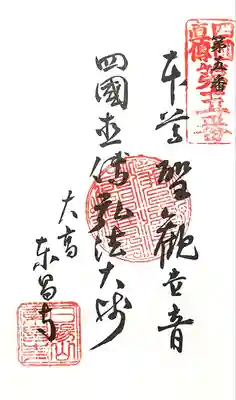 四國直傳第五番
第五番
本尊聖觀世音
四國直傳弘法大師
大高
東昌寺